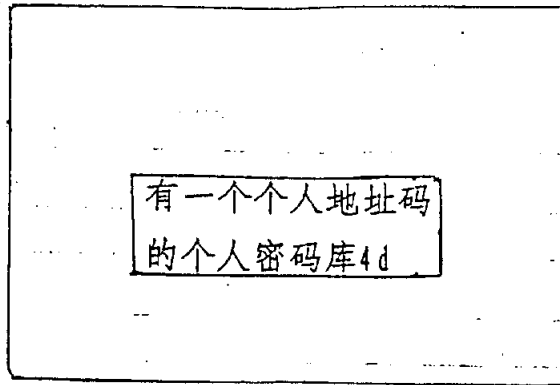 有一个个人地址码
的个人密码库4d